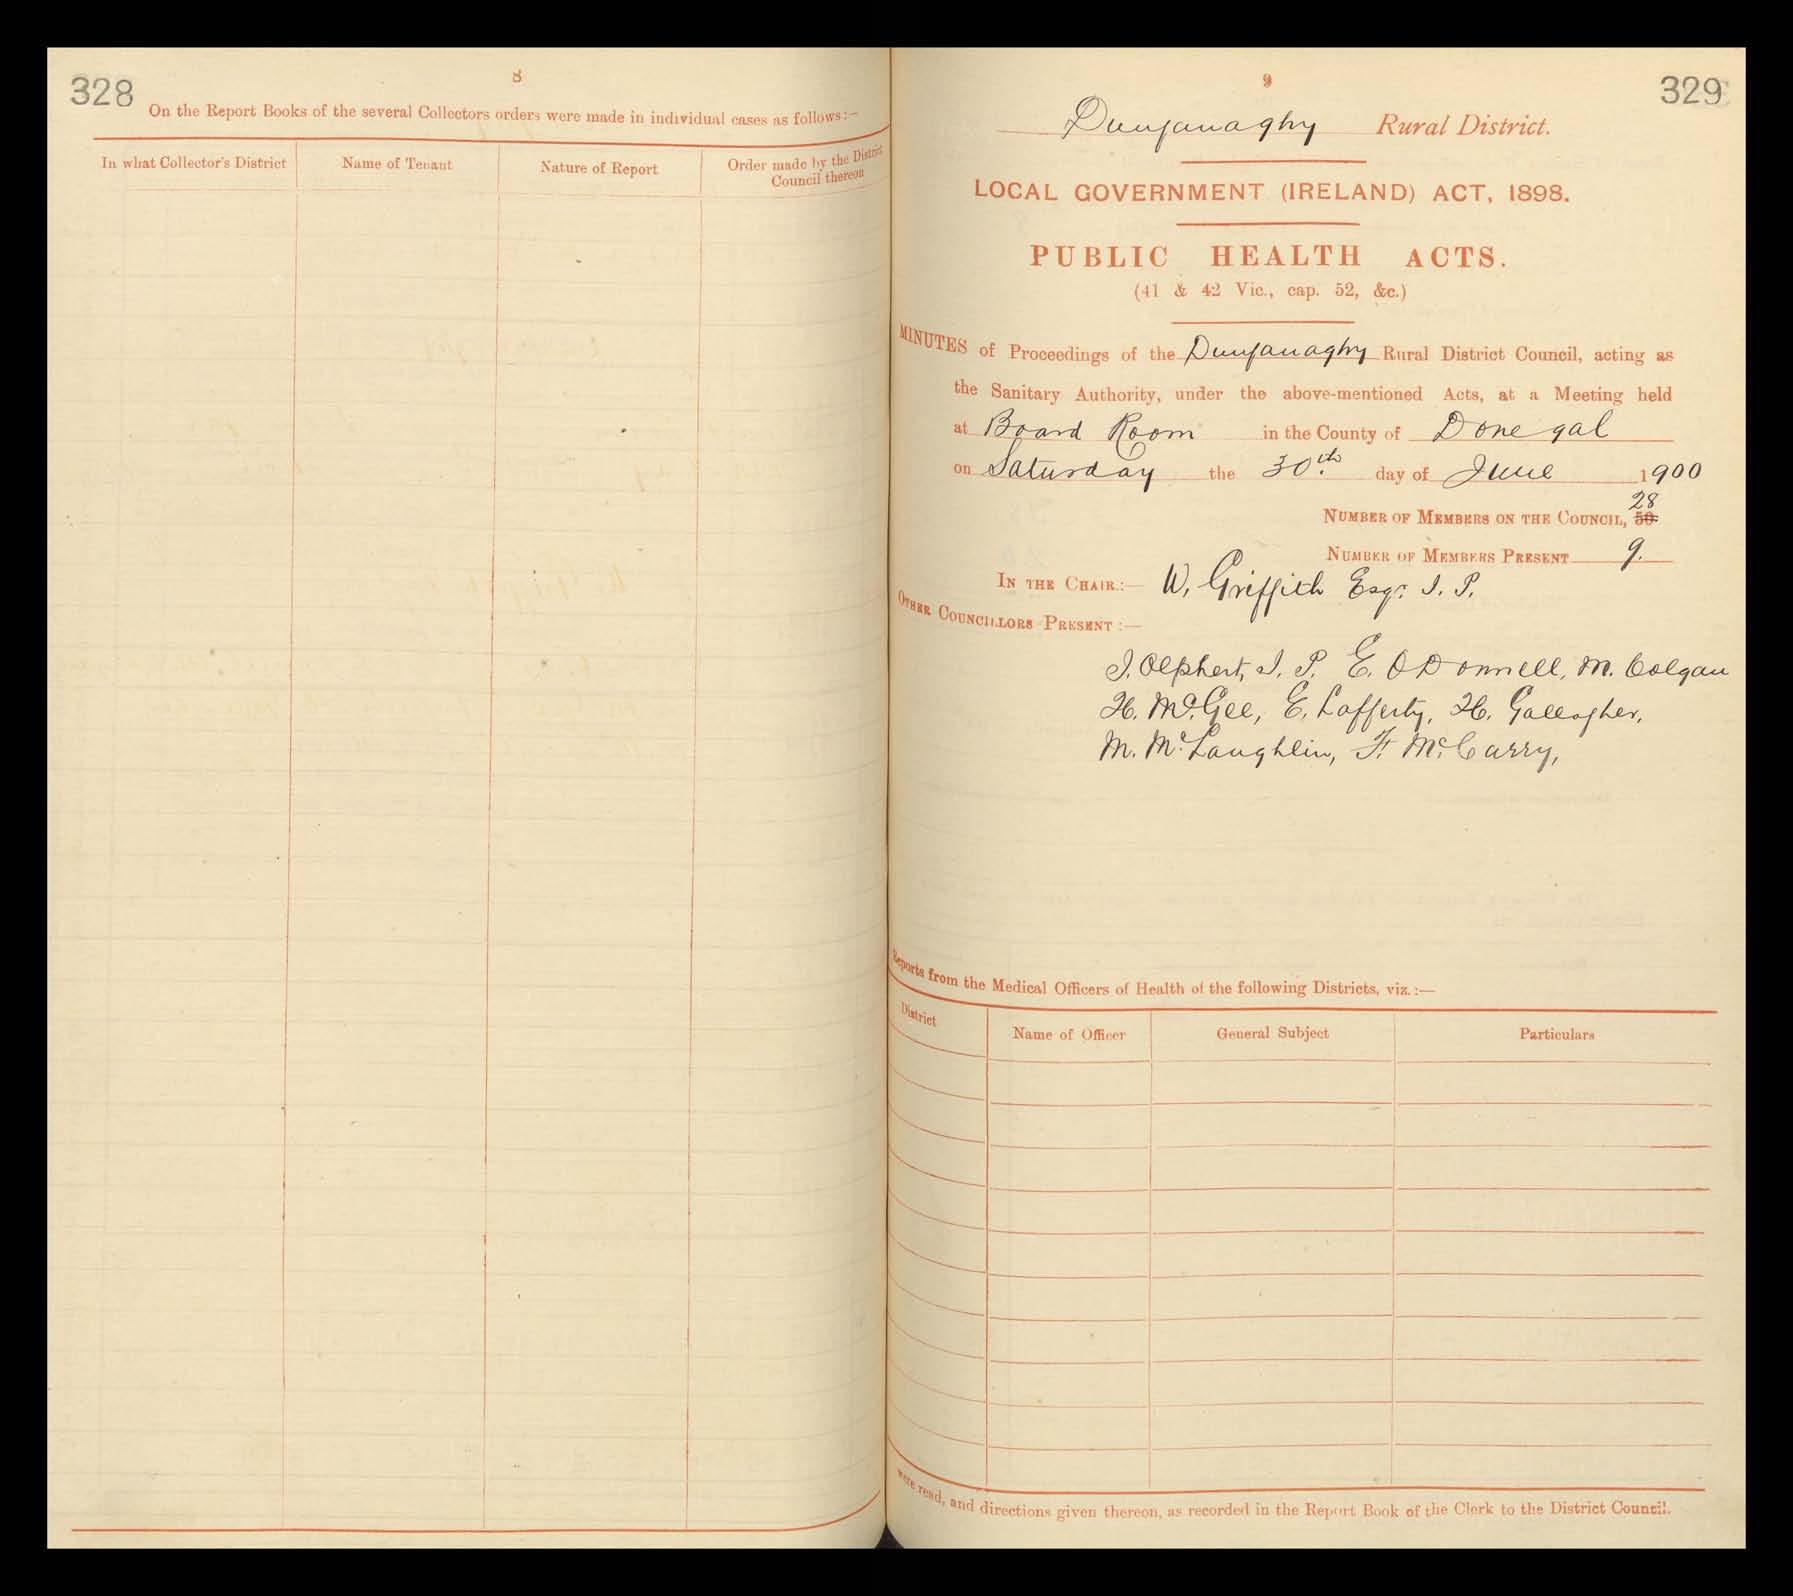 328
8
On the Report Books of the several Collectors orders were made in individual cases as follows:—
In what Collector's District
Name of Tenant
Nature of Report
Order made by the District
Council thereon
329
9
Dunfanaghy Rural District.
LOCAL GOVERNMENT (IRELAND) ACT, 1898.
PUBLIC HEALTH ACTS.
(41 & 42 Vic., cap. 52, &c.)
MINUTES of Proceedings of the Dunfanaghy Rural District Council, acting as
the Sanitary Authority, under the above-mentioned Acts, at a Meeting held
at Board Room in the County of Donegal
on Saturday the 30th. day of June 1900
28
NUMBER OF MEMBERS ON THE COUNCIL, 50.
NUMBER OF MEMBERS PRESENT 9.
IN THE CHAIR:— W. Griffith Esqr. J. P.
OTHER COUNCILLORS PRESENT:—
J. Olphert, J. P. E. O Donnell, M. Colgan
H. McGee, E. Lafferty, H. Gallagher,
M. McLaughlin, F. McCarry,
Reports from the Medical Officers of Health of the following Districts, viz.:—
District
Name of Officer
General Subject
Particulars
were read, and directions given thereon, as recorded in the Report Book of the Clerk to the District Council.